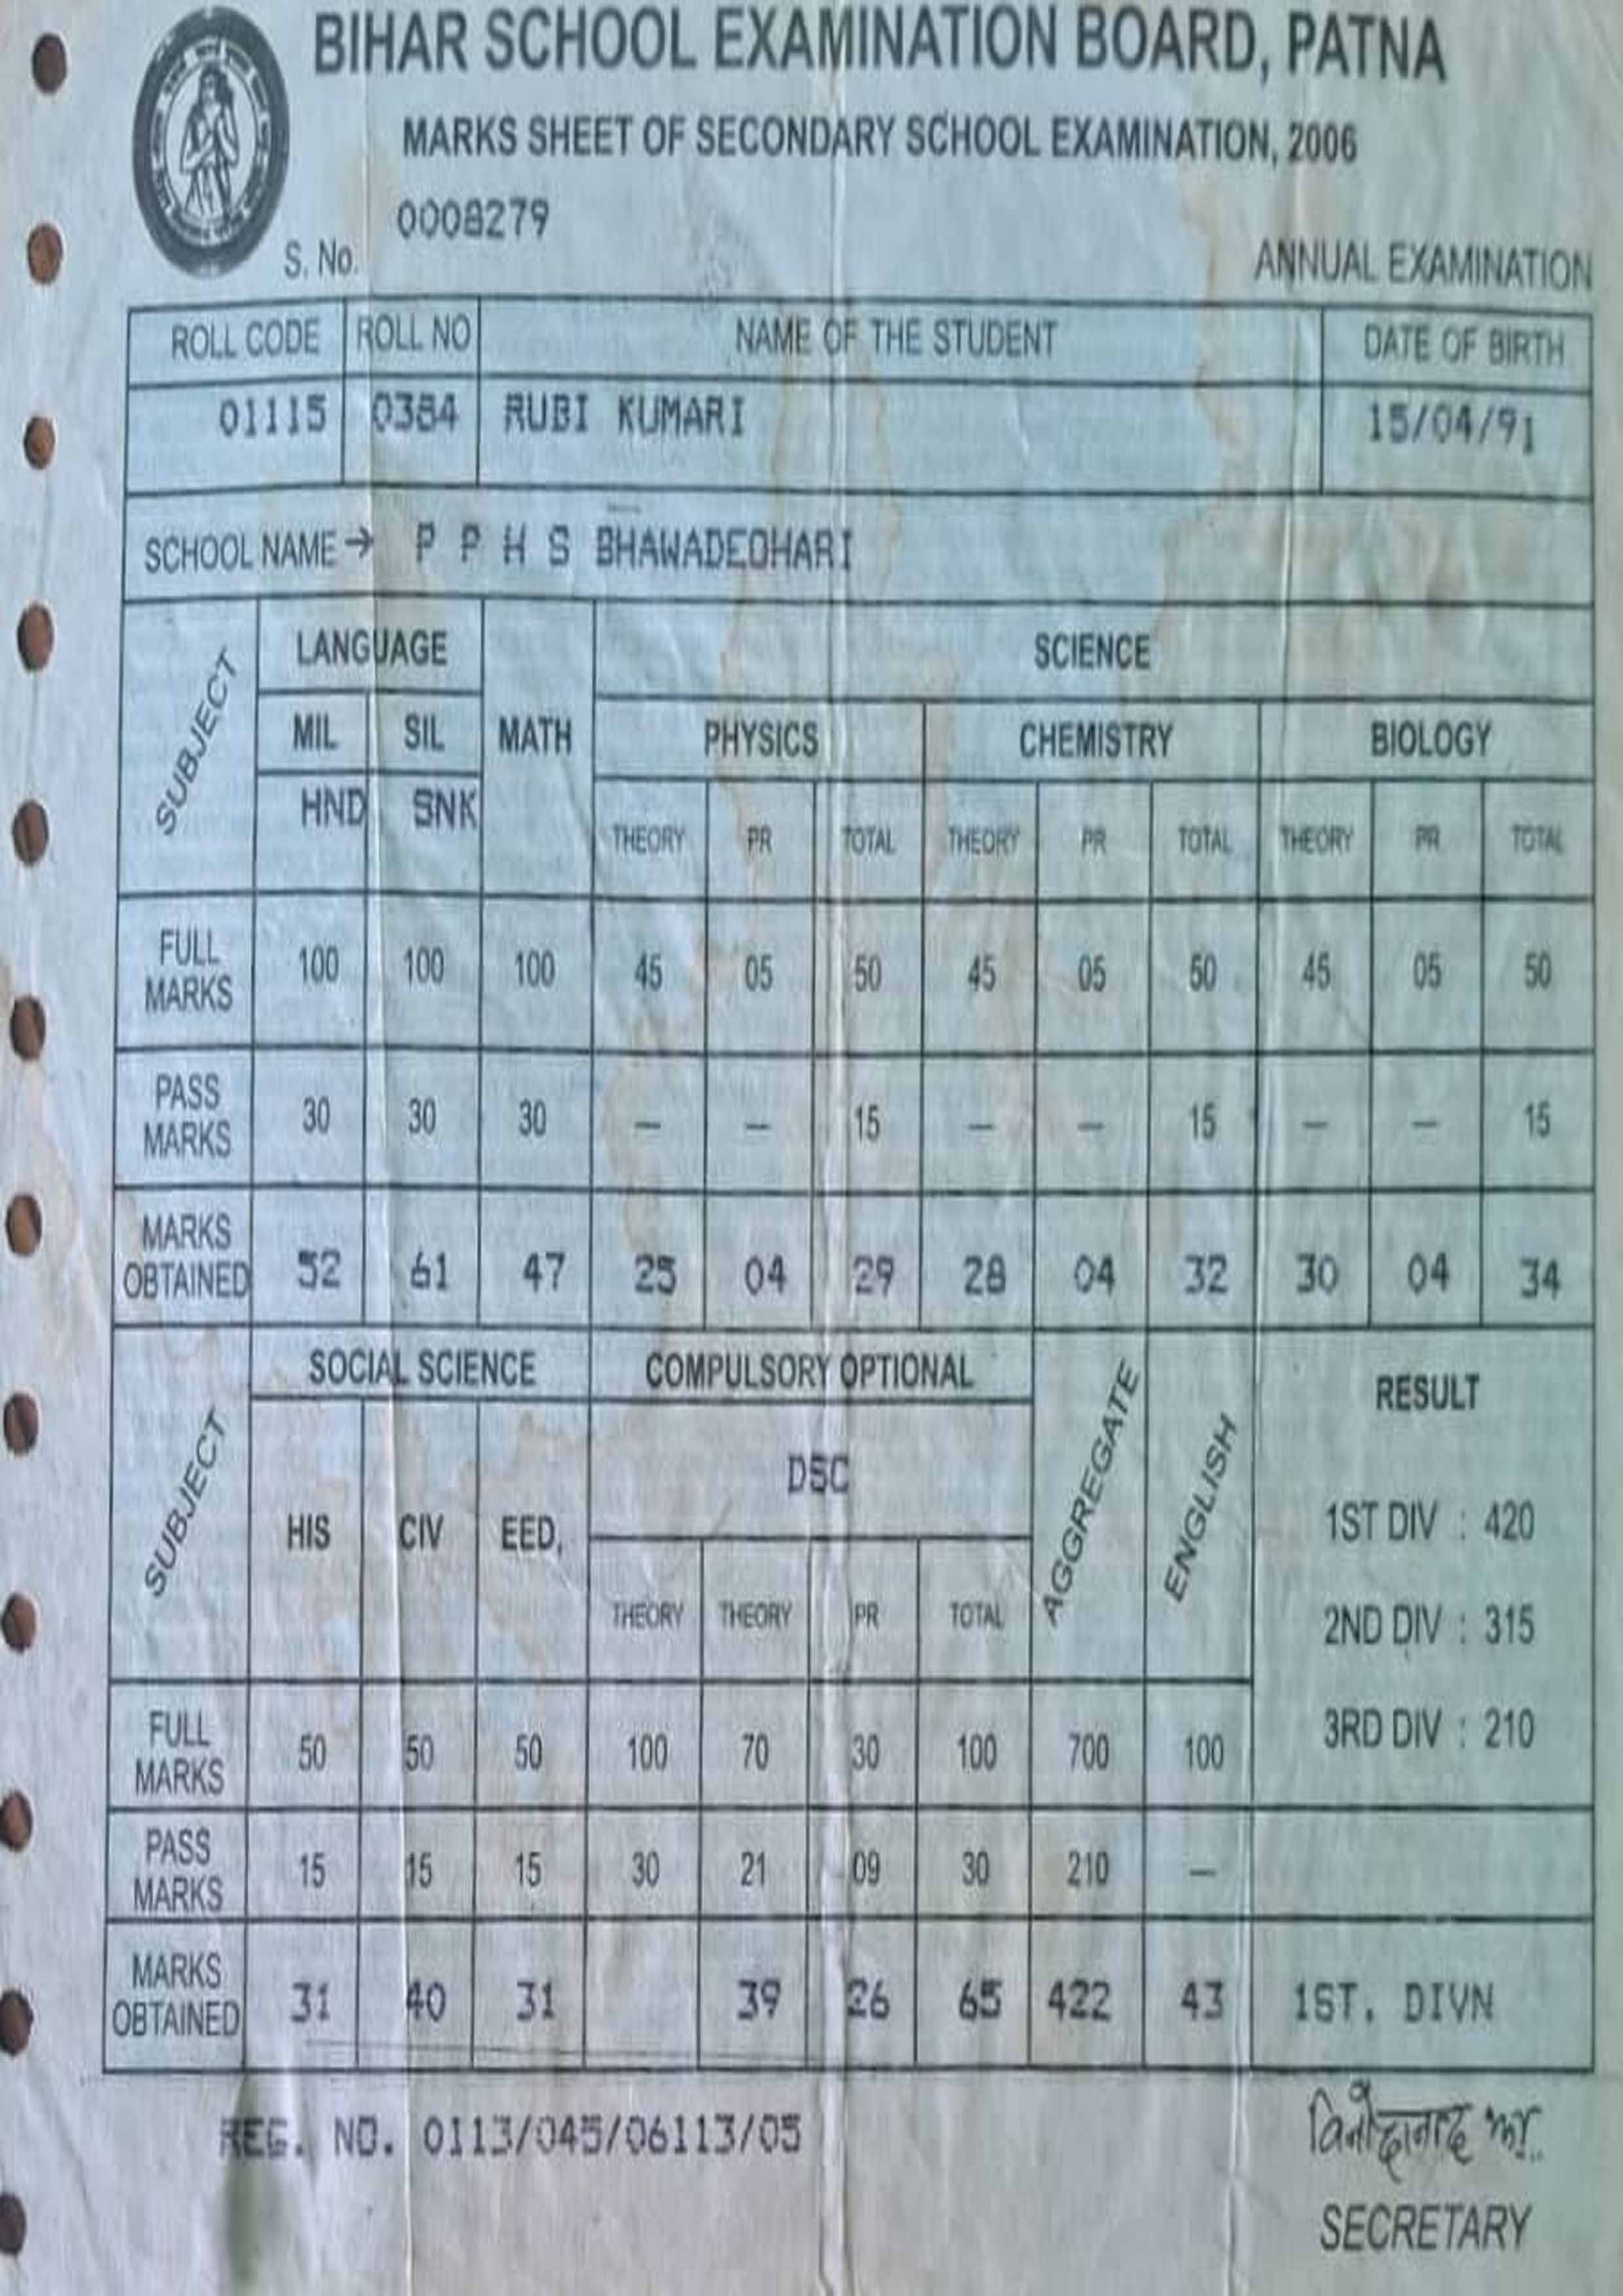 BIHAR SCHOOL EXAMINATION BOARD, PATNA
MARKS SHEET OF SECONDARY SCHOOL EXAMINATION, 2006
0008279
S. No.
ANNUAL EXAMINATION
ROLL CODE ROLL NO NAME OF THE STUDENT DATE OF BIRTH
01115 0384 RUBI KUMARI 15/04/91
SCHOOL NAME → P P H S BHAWADEOHARI
SUBJECT LANGUAGE MATH SCIENCE
MIL SIL PHYSICS CHEMISTRY BIOLOGY
HND SNK
THEORY PR TOTAL THEORY PR TOTAL THEORY PR TOTAL
FULL MARKS 100 100 100 45 05 50 45 05 50 45 05 50
PASS MARKS 30 30 30 — — 15 — — 15 — — 15
MARKS OBTAINED 52 61 47 25 04 29 28 04 32 30 04 34
SUBJECT SOCIAL SCIENCE COMPULSORY OPTIONAL AGGGREGATE ENGLISH RESULT
DSC
HIS CIV EED,
1ST DIV : 420
THEORY THEORY PR TOTAL
2ND DIV : 315
3RD DIV : 210
FULL MARKS 50 50 50 100 70 30 100 700 100
PASS MARKS 15 15 15 30 21 09 30 210 —
MARKS OBTAINED 31 40 31 39 26 65 422 43 1ST. DIVN
REG. NO. 0113/045/06113/05
विनोदानन्द झा
SECRETARY